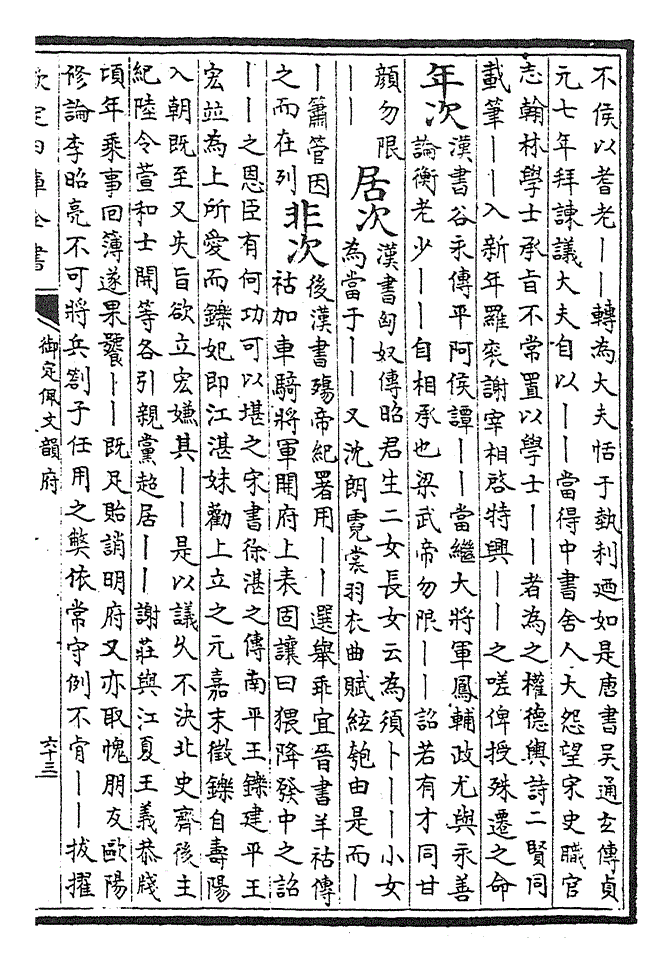 不侯以耆老丨丨轉為大夫恬于埶利廼如是唐書吴通玄傳貞
元七年拜諫議大夫自以丨丨當得中書舍人大怨望宋史職官
志翰林學士承旨不常置以學士丨丨者為之權德輿詩二賢同
載筆丨丨入新年羅衮謝宰相啓特興丨丨之嗟俾授殊遷之命
年次漢書谷永傳平阿侯譚丨丨當繼大將軍鳳輔政尤與永善
論衡老少丨丨自相承也梁武帝勿限丨丨詔若有才同甘
顔勿限
丨丨
居次漢書匈奴傳昭君生二女長女云為須卜丨丨小女
為當于丨丨又沈朗霓裳羽衣曲賦絃匏由是而丨
丨簫管因
之而在列
非次後漢書殤帝紀署用丨丨選舉乖宜晉書羊祜傳
祜加車騎將軍開府上表固讓曰猥降發中之詔
丨丨之恩臣有何功可以堪之宋書徐湛之傳南平王鑠建平王
宏並為上所愛而鑠妃即江湛妹勸上立之元嘉末徵鑠自壽陽
入朝既至又失旨欲立宏嫌其丨丨是以議乆不決北史齊後主
紀陸令萱和士開等各引親黨超居丨丨謝莊與江夏王義恭牋
頃年乘事回薄遂果饕丨丨既足貽誚明府又亦取愧朋友歐陽
修論李昭亮不可將兵劄子任用之弊依常守例不肯丨丨拔擢
欽定四庫全書
御定佩文韻府
六十三